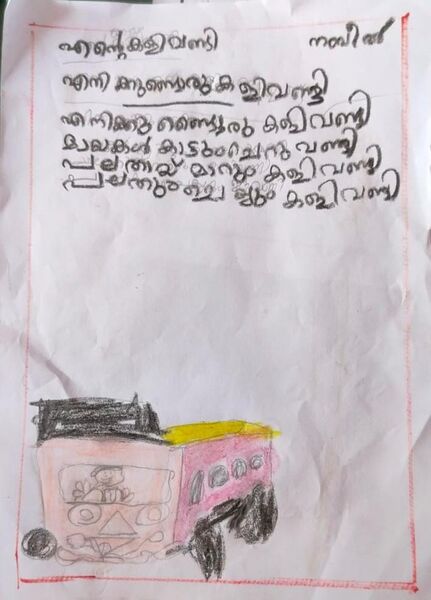 എന്റെകളിവണ്ടി നബീൽ
എനിക്കുണ്ടൊരുകളിവണ്ടി
എനിക്കുണ്ടൊരു കളിവണ്ടി
കാട്ടും ചെറു വണ്ടി
പലതായ് മാറും കളിവണ്ടി
പലതും കളിവണ്ടി